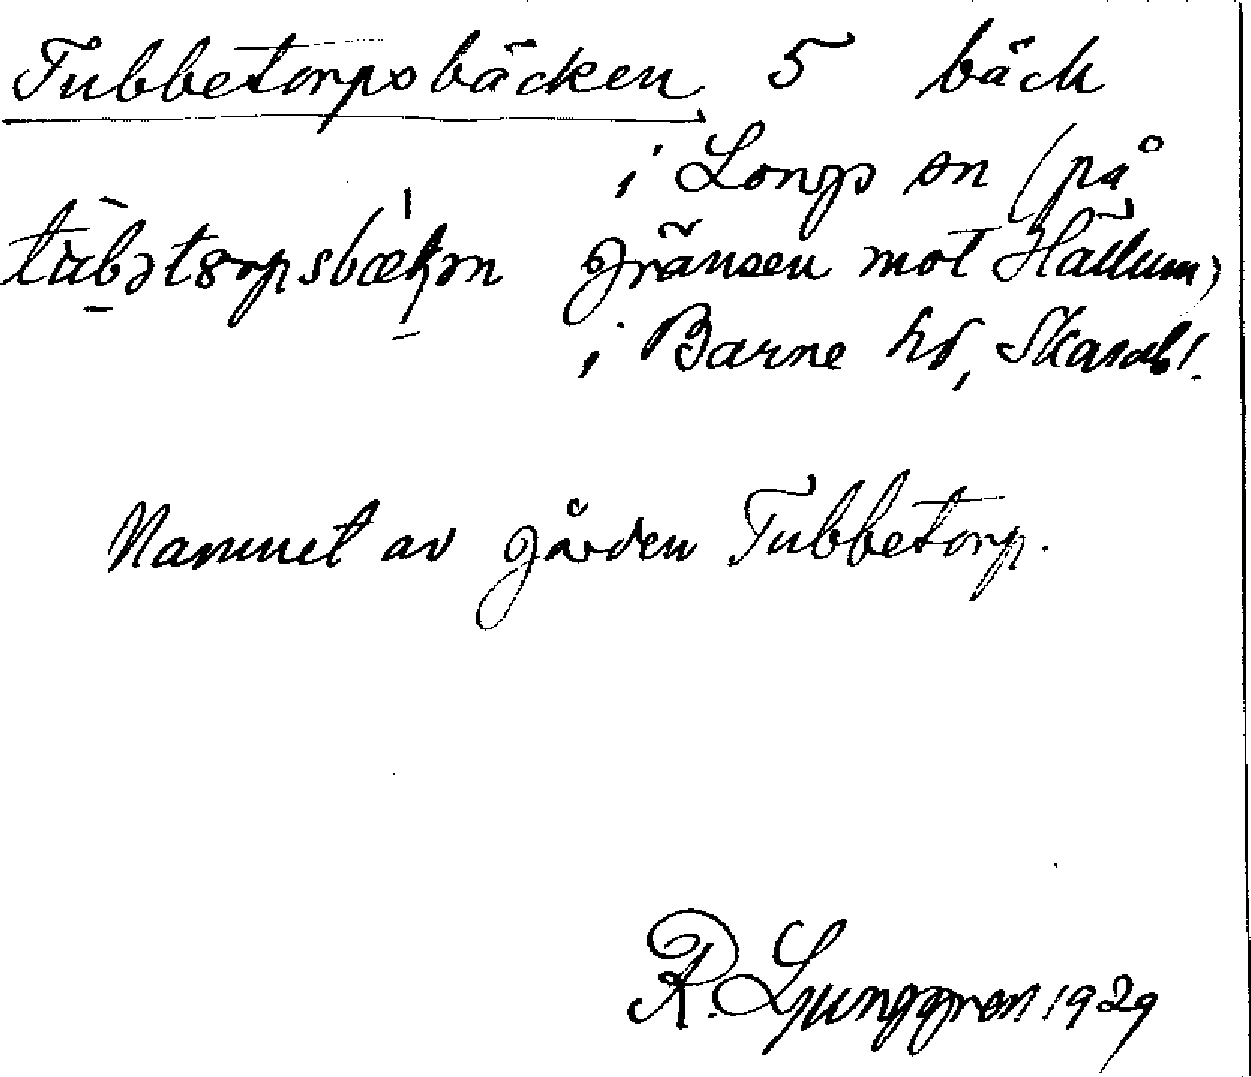 Tubbetorpsbäcken 5 bäck
i Longs sn (på
gränsen mot Hällum)
i Barne hd, Skarabl.
Namnet av gården Tubbetorp.
R. Ljunggren 1929